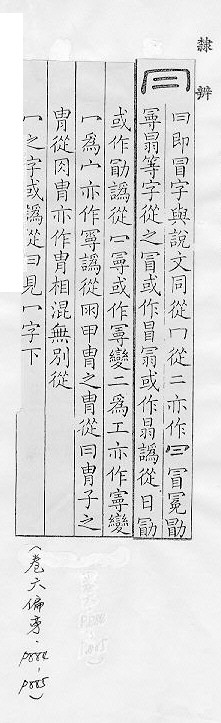 隸辨
冃
冃即冒字與說文同從冂從二亦作冃冒冕勖
𦐇等字從之冒或作冐𦐇或作譌從日勖
或作勖譌從冖或作變二為工亦作變
冖為宀亦作譌從雨甲冑之冑從冃冑子之
冑從肉冑亦作胄相混無別從
冖之字或譌從冃見冖字下
(卷六偏旁·P884、P885)